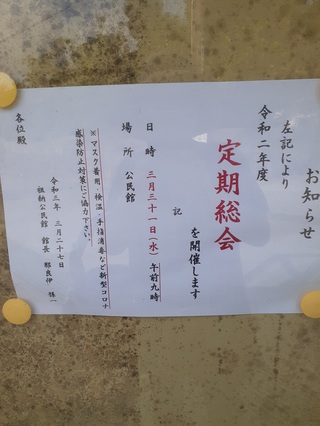 お知らせ
左記により
令和二年度
定期総会
を開催します
記
日時 三月三十一日(水)午前九時
場所 公民館
※マスク着用・検温・手指消毒など新型コロナ
感染防止対策にご協力下さい。
令和三年 三月二十七日
祖納公民館 館長 那良伊
各位殿